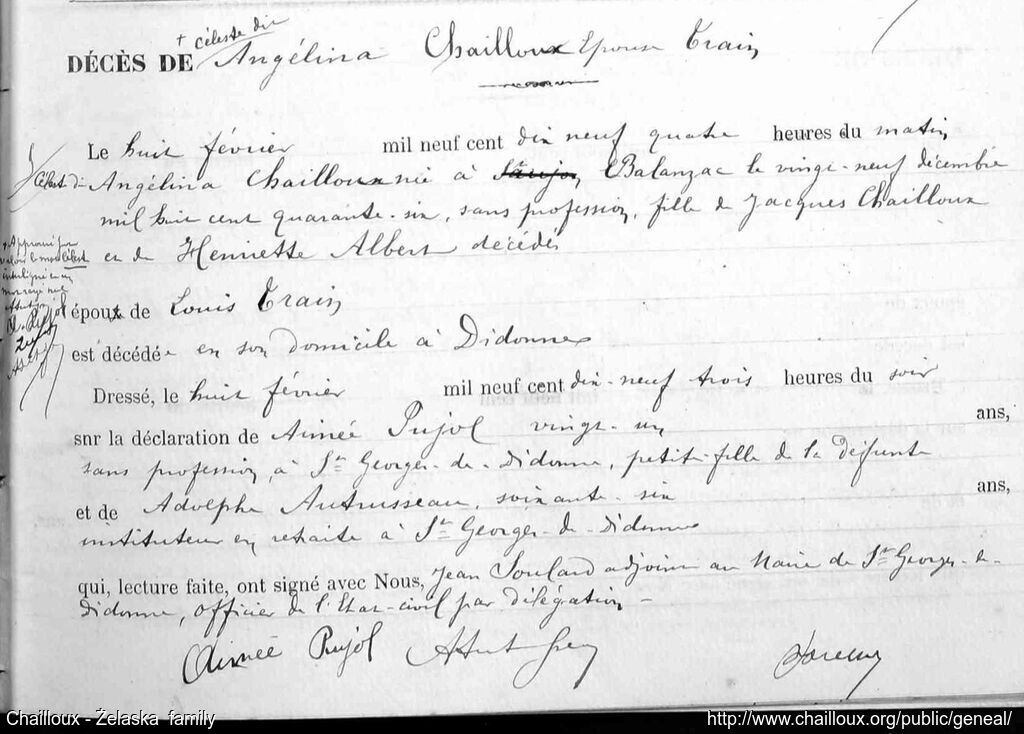 + Céleste dit
DÉCÈS DE Angélina Chailloux Epouse Train
Le huit février mil neuf cent dix neuf quatre heures du matin
Célest dit Angélina Chailloux née à Saujon Balanzac le vingt-neuf décembre
mil huit cent quarante-six, sans profession, fille de Jacques Chailloux
et de Henriette Albert décédés
époux de Louis Train
est décédée en son domicile à Didonne
Dressé, le huit février mil neuf cent dix-neuf trois heures du soir
snr la déclaration de Aimée Pujol vingt-un ans,
sans profession, à St Georges-de-Didonne, petite-fille de la défunte
et de Adolphe Autrusseau, soixante-six ans,
instituteur en retraite à St Georges-de-Didonne
qui, lecture faite, ont signé avec Nous, Jean Soulard adjoint au Maire de St Georges-de-
Didonne, officier de l'Etat-civil par délégation-
Aimée Pujol
+ Approuvé
le mot Célest
A. Pujol
Chailloux - Żelaska family
http://www.chailloux.org/public/geneal/